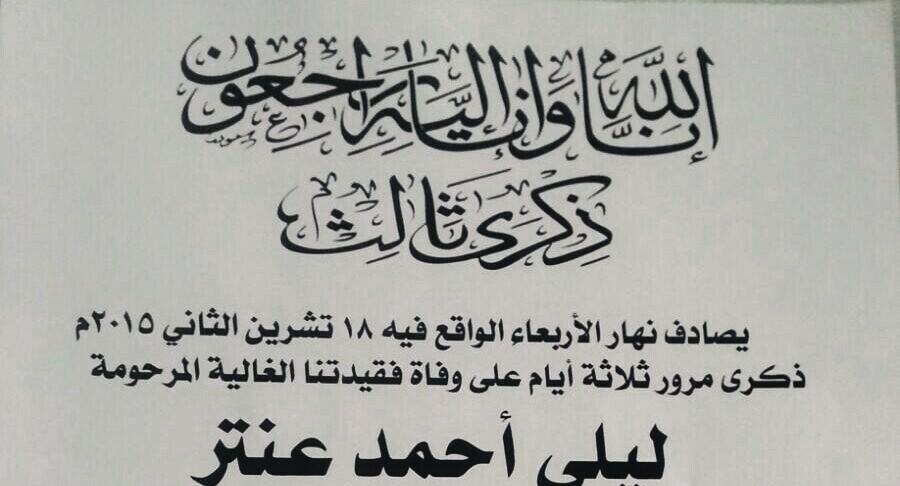 إنا لله وإنا إليه راجعون
ذكرى ثالث
يصادف نهار الأربعاء الواقع فيه ١٨ تشرين الثاني ٢٠١٥م
ذكرى مرور ثلاثة أيام على وفاة فقيدتنا الغالية المرحومة
ليلى أحمد عنتر